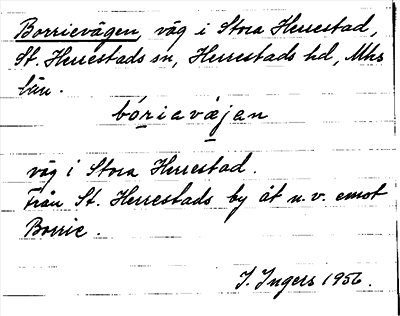 Borrievägen, väg i Stora Herrestad,
St. Herrestads sn, Herrestads hd, Mhs
län.
bóriavàjan
väg i Stora Herrestad.
Från St. Herrestads by åt n.v. emot
Borrie.
I. Ingers 1956.